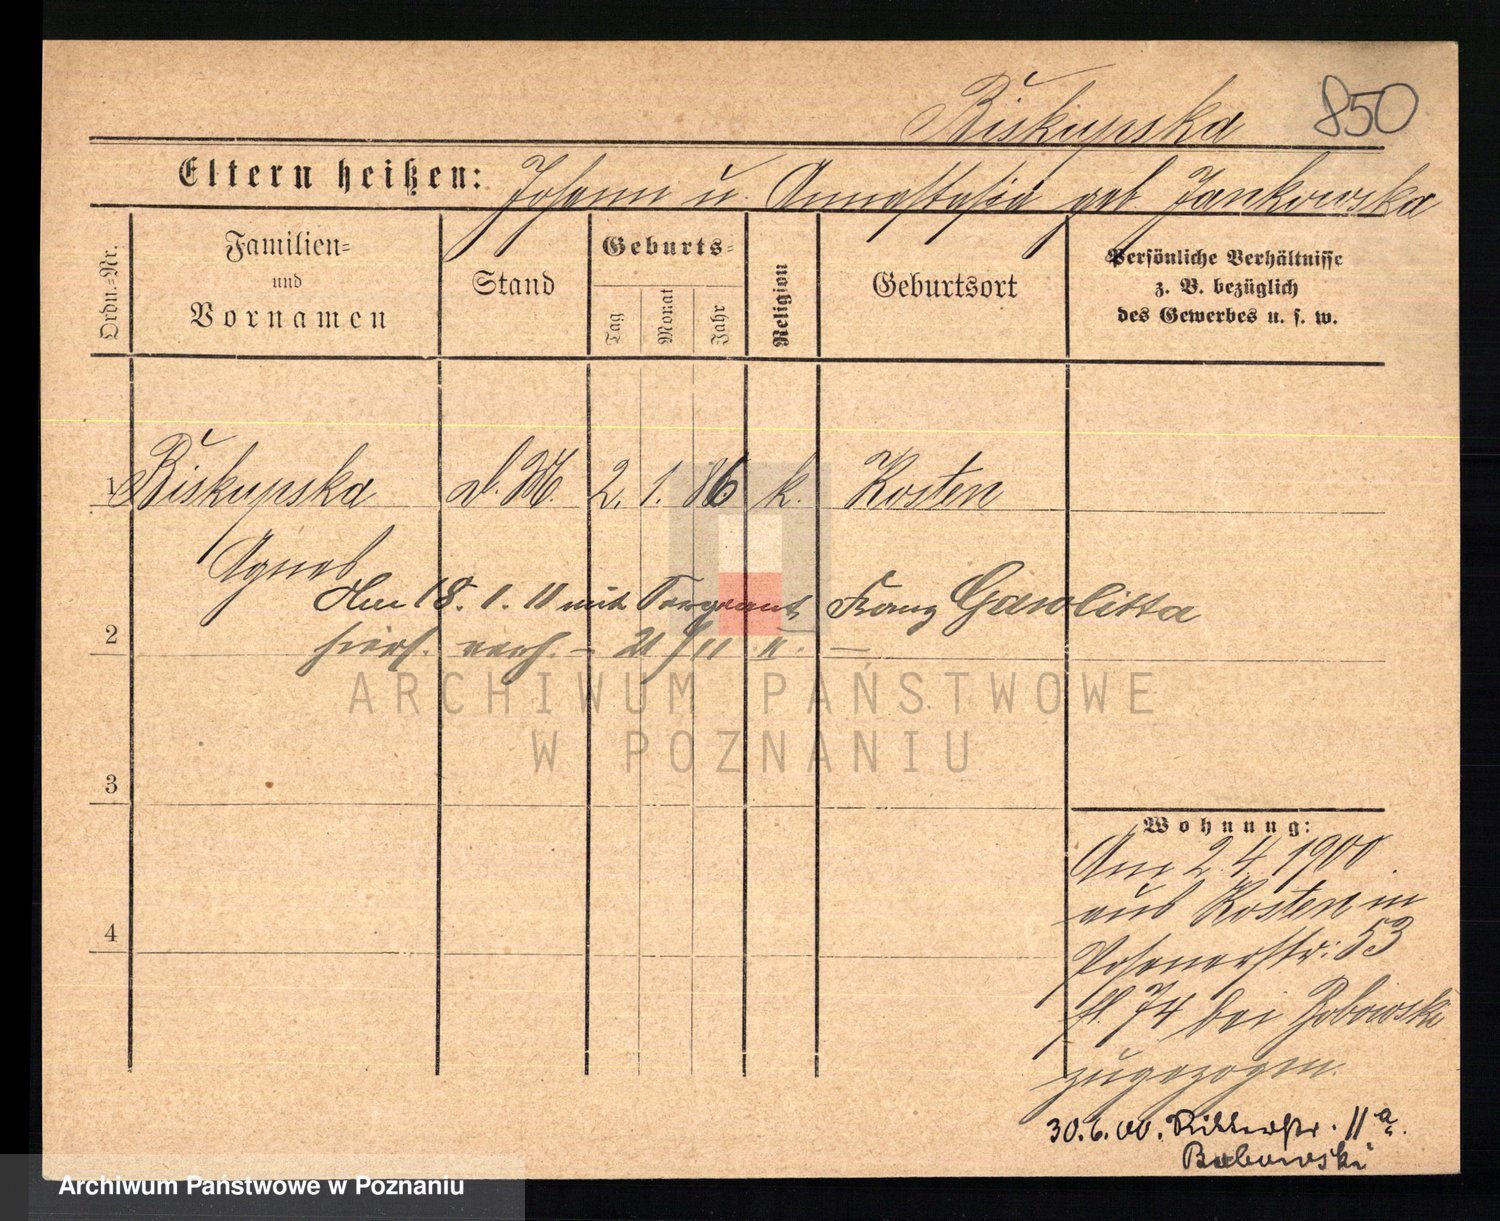 Biskupska 850
Eltern heißen: Johann u. Annastasia geb Jankowska
Ordn.-Nr.
Familien-
und
Vornamen
Stand
Geburts-
Tag
Monat
Jahr
Religion
Geburtsort
Persönliche Verhältnisse
z. B. bezüglich
des Gewerbes u. s. w.
1 Biskupska D. M. 2. 1. 86 k. Kosten
Agnes
Am 18. 1. 11 mit Franz Gawlitta
2 verh. – 21/11 11. –
ARCHIWUM PAŃSTWOWE
W POZNANIU
3
Wohnung:
Am 2 4 1900
aus Kosten in
4 Posenerstr: 53
bei Bobowski
zugezogen.
30.6.00. Ritterstr. 11a.
Bobowski
Archiwum Państwowe w Poznaniu